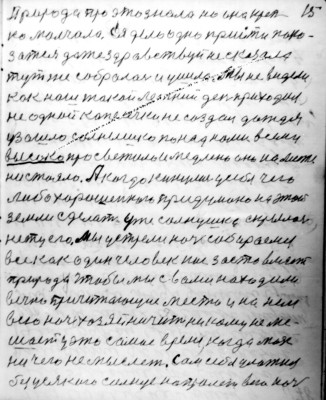 Природа про это знала но она креп 15
ко молчала. Ей дело одно прийти пока-
заться даже здравствуй не сказала
тут же собралася и ушила. Мы не видим
как наш такой летний ден приходил
не одной капелечки не создал дождя
взошло солнышко по над нами всеми
высоко просветило и медлено оно на месте
не стояло. А когда кинулись себе чего
либо хорошинького придумано на этой
земли сделать. Уже солнушко скрылось
нету его. Мы устрели ноч собираемся
все как один человек нас заставляет
природа чтобы мы с вами находили
вечно причитающие места и на нем
всю ноч хозяйничить никому не ме-
шает у это самое время когда може
ни чего не мыслет. Сам себя уложил
без всякого солнце на тело всю ноч